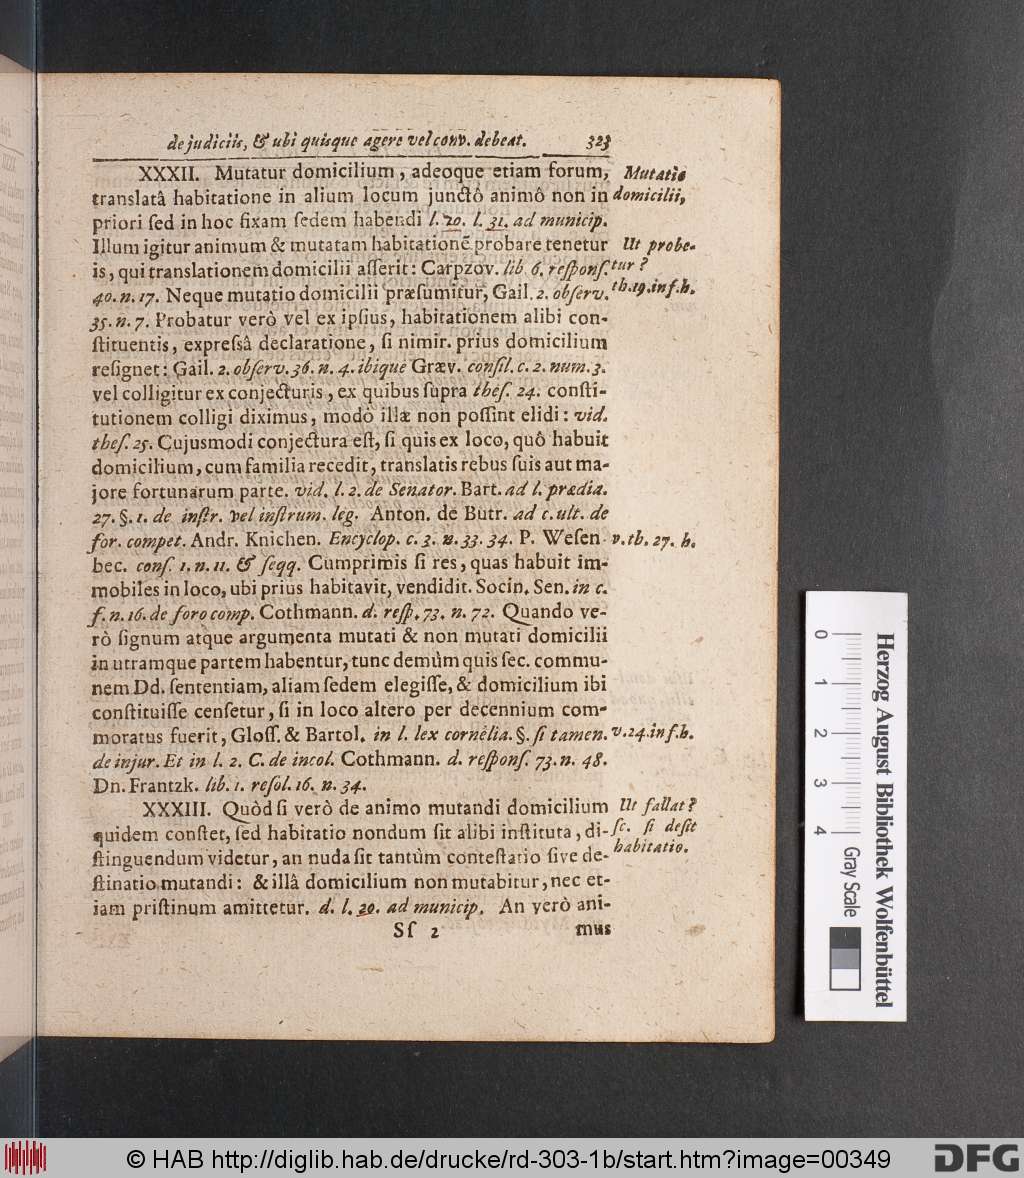 de judiciis, & ubi quisque agere vel conv. debeat. 323
XXXII. Mutatur domicilium, adeoque etiam forum,
translatâ habitatione in alium locum junctô animô non in
priori ſed in hoc fixam ſedem habendi l. 20. l. 31. ad municip.
Illum igitur animum & mutatam habitationẽ probare tenetur
is, qui translationem domicilii aſſerit: Carpzov. lib 6. reſponſ.
40. n. 17. Neque mutatio domicilii præſumitur, Gail. 2. obſerv.
35. n. 7. Probatur verò vel ex ipſius, habitationem alibi con-
ſtituentis, expreſsâ declaratione, ſi nimir. prius domicilium
reſignet: Gail. 2. obſerv. 36. n. 4. ibique Græv. conſil. c. 2. num. 3.
vel colligitur ex conjecturis, ex quibus ſupra theſ. 24. conſti-
tutionem colligi diximus, modò illæ non poſſint elidi: vid.
theſ. 25. Cujusmodi conjectura eſt, ſi quis ex loco, quô habuit
domicilium, cum familia recedit, translatis rebus ſuis aut ma-
jore fortunarum parte. vid. l. 2. de Senator. Bart. ad l. prædia.
27. §. 1. de inſtr. vel inſtrum. leg. Anton. de Butr. ad c. ult. de
for. compet. Andr. Knichen. Encyclop. c. 3. n. 33. 34. P. Weſen-
bec. conſ. 1. n. 11. & ſeqq. Cumprimis ſi res, quas habuit im-
mobiles in loco, ubi prius habitavit, vendidit. Socin. Sen. in c.
f. n. 16. de foro comp. Cothmann. d. reſp. 73. n. 72. Quando ve-
rò ſignum atque argumenta mutati & non mutati domicilii
in utramque partem habentur, tunc demùm quis ſec. commu-
nem Dd. ſententiam, aliam ſedem elegiſſe, & domicilium ibi
conſtituiſſe cenſetur, ſi in loco altero per decennium com-
moratus fuerit, Gloſſ. & Bartol. in l. lex cornelia. §. ſi tamen.
de injur. Et in l. 2. C. de incol. Cothmann. d. reſponſ. 73. n. 48.
Dn. Frantzk. lib. 1. reſol. 16. n. 34.
XXXIII. Quòd ſi verò de animo mutandi domicilium
quidem conſtet, ſed habitatio nondum ſit alibi inſtituta, di-
ſtinguendum videtur, an nuda ſit tantùm conteſtatio ſive de-
ſtinatio mutandi: & illâ domicilium non mutabitur, nec et-
iam priſtinum amittetur. d. l. 20. ad municip. An verò ani-
Sſ 2 mus
Mutatio
domicilii,
Ut probe-
tur?
th. 19. inf. h.
v. th. 27. h.
v. 24. inf. h.
Ut fallat?
ſc. ſi deſit
habitatio.
0 1 2 3 4
Gray Scale
Herzog August Bibliothek Wolfenbüttel
© HAB http://diglib.hab.de/drucke/rd-303-1b/start.htm?image=00349
DFG